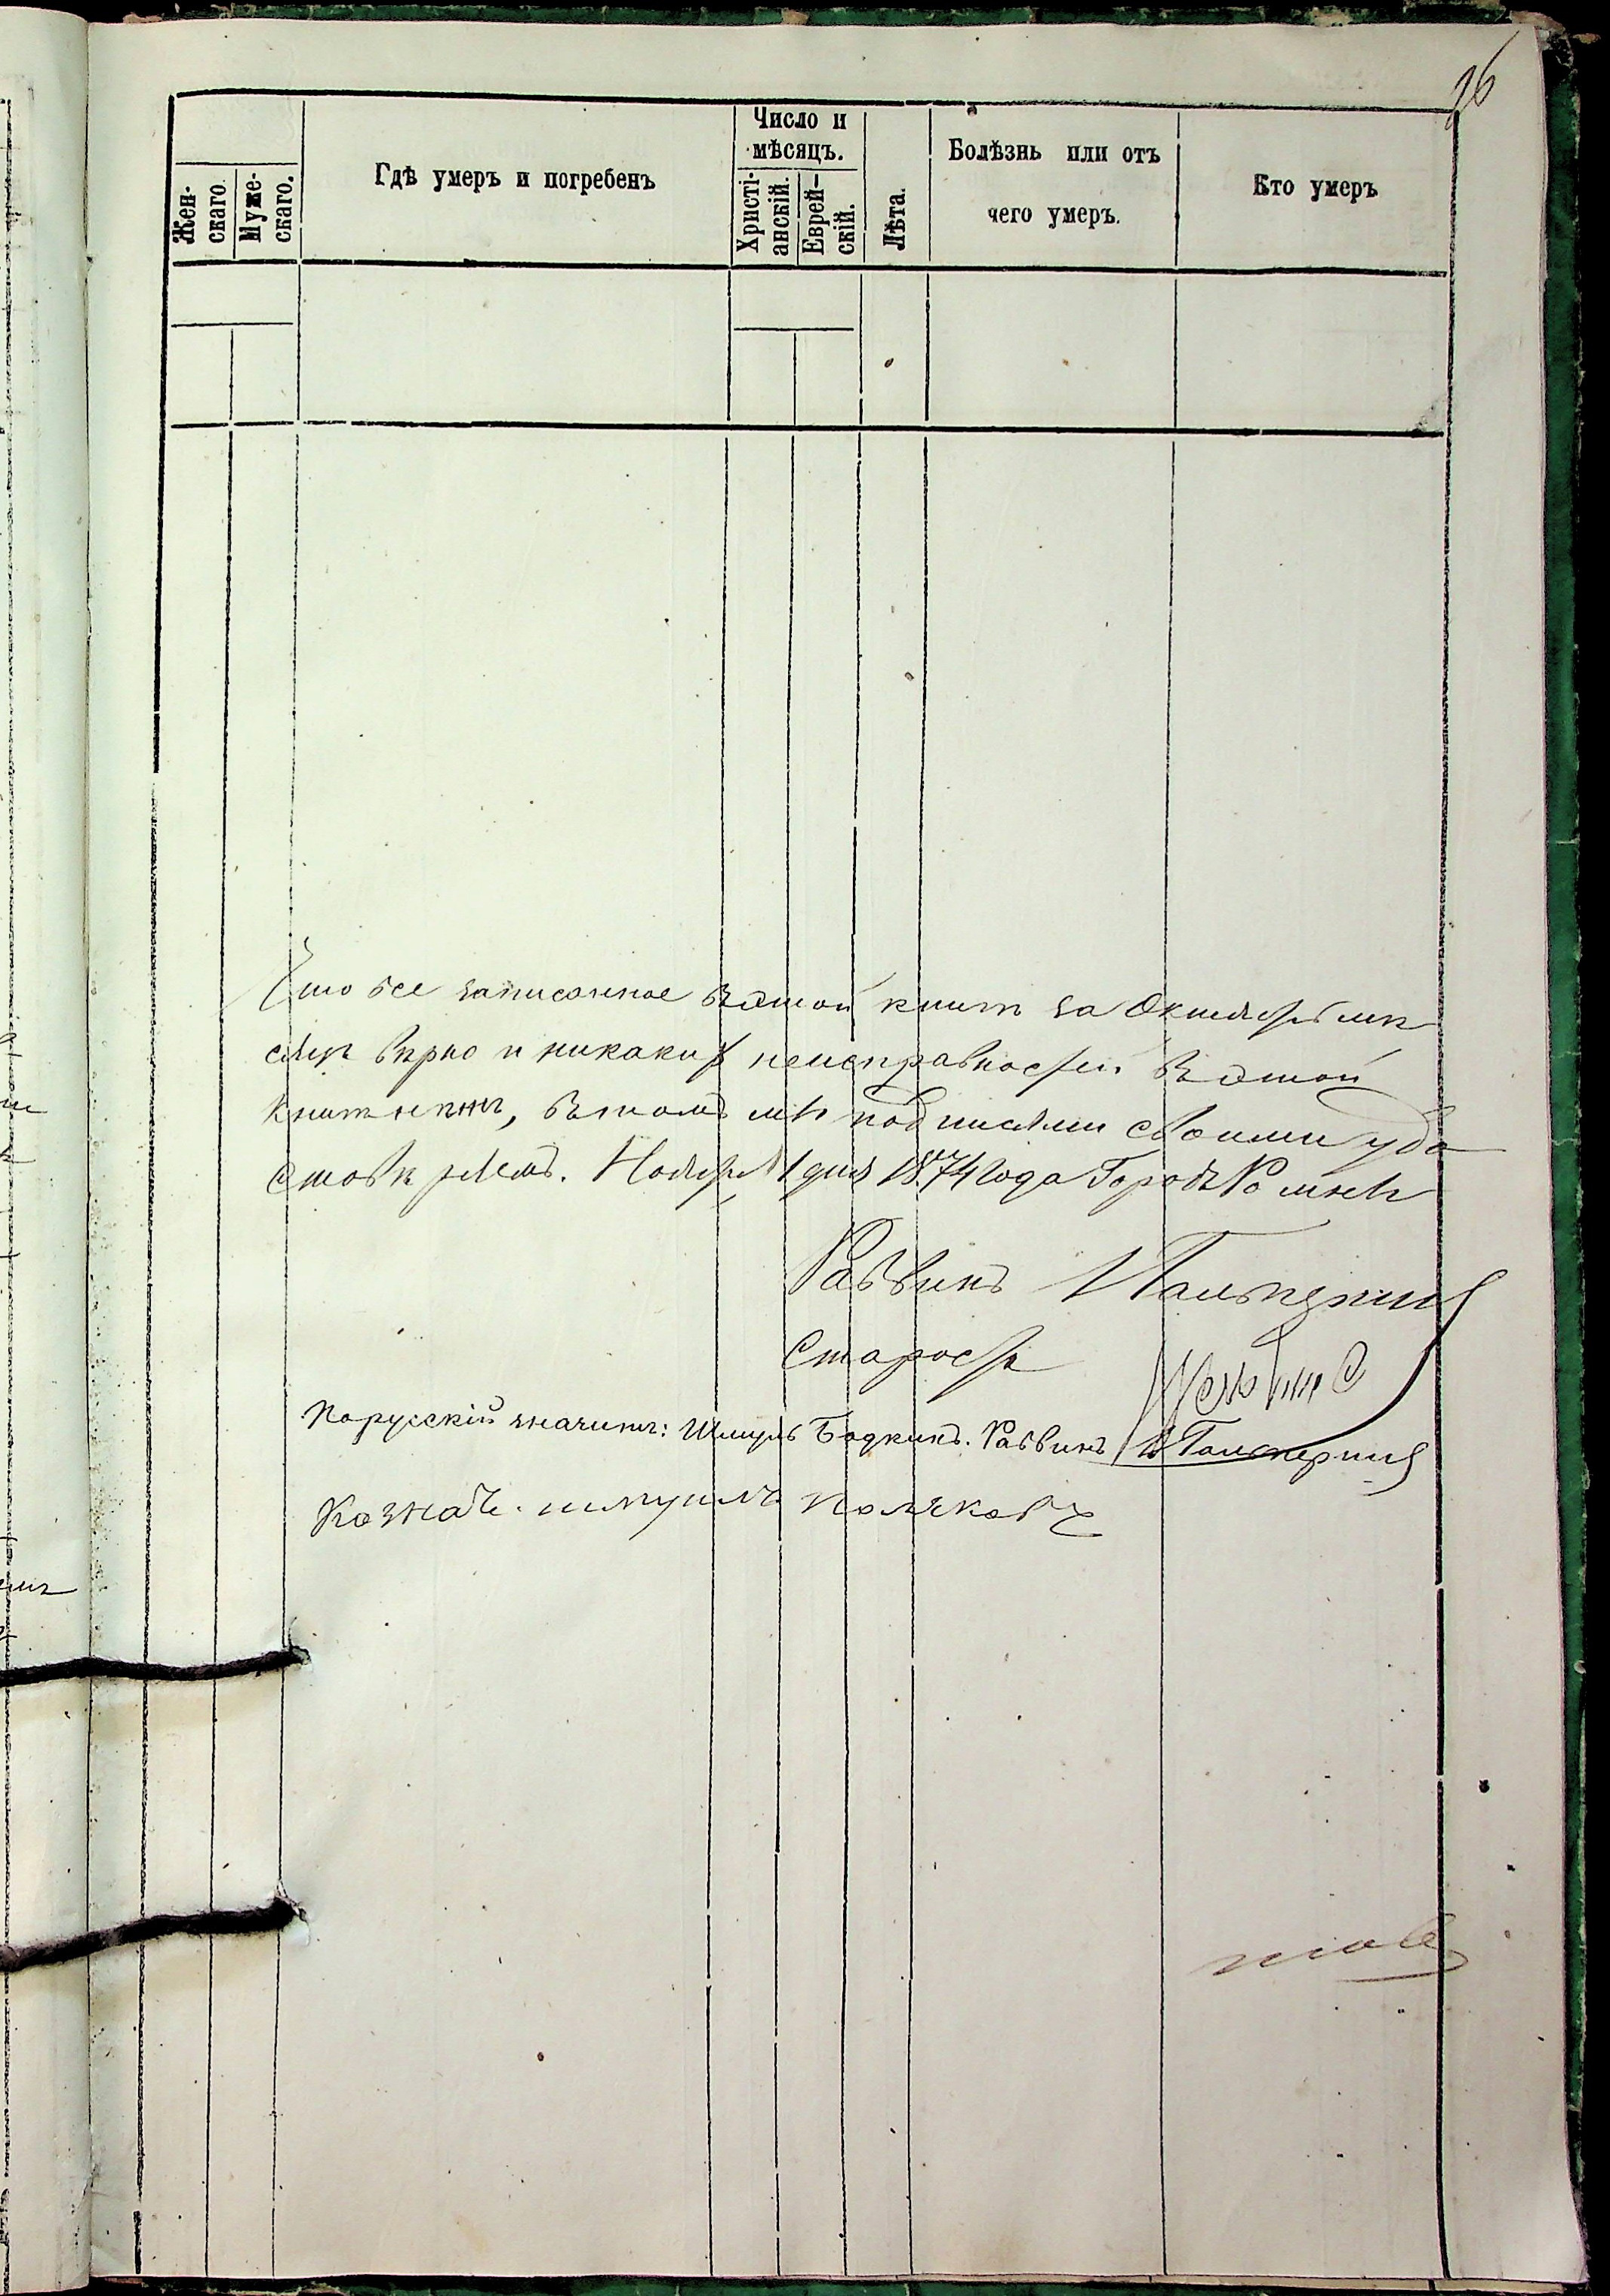 26
Жен-
скаго.
Муже-
скаго.
Гдѣ умеръ и погребенъ
Число и
мѣсяцъ.
Христі-
анскій.
Еврей-
скій.
Лѣта.
Болѣзнь или отъ
чего умеръ.
Кто умеръ
Что все записанное въ этой книгѣ за Октябрь мѣ
сяцъ вѣрно и никакихъ неисправностей въ этой
книгѣ нѣтъ, въ томъ мы подписями своими удо
стовѣряемъ. Ноября 1 дня 1874 года Городъ Ромны
Раввинъ
Староста
По русскій значитъ: Шмуль Бодкинъ. Раввинъ
Казнач. шмуилъ поляковъ